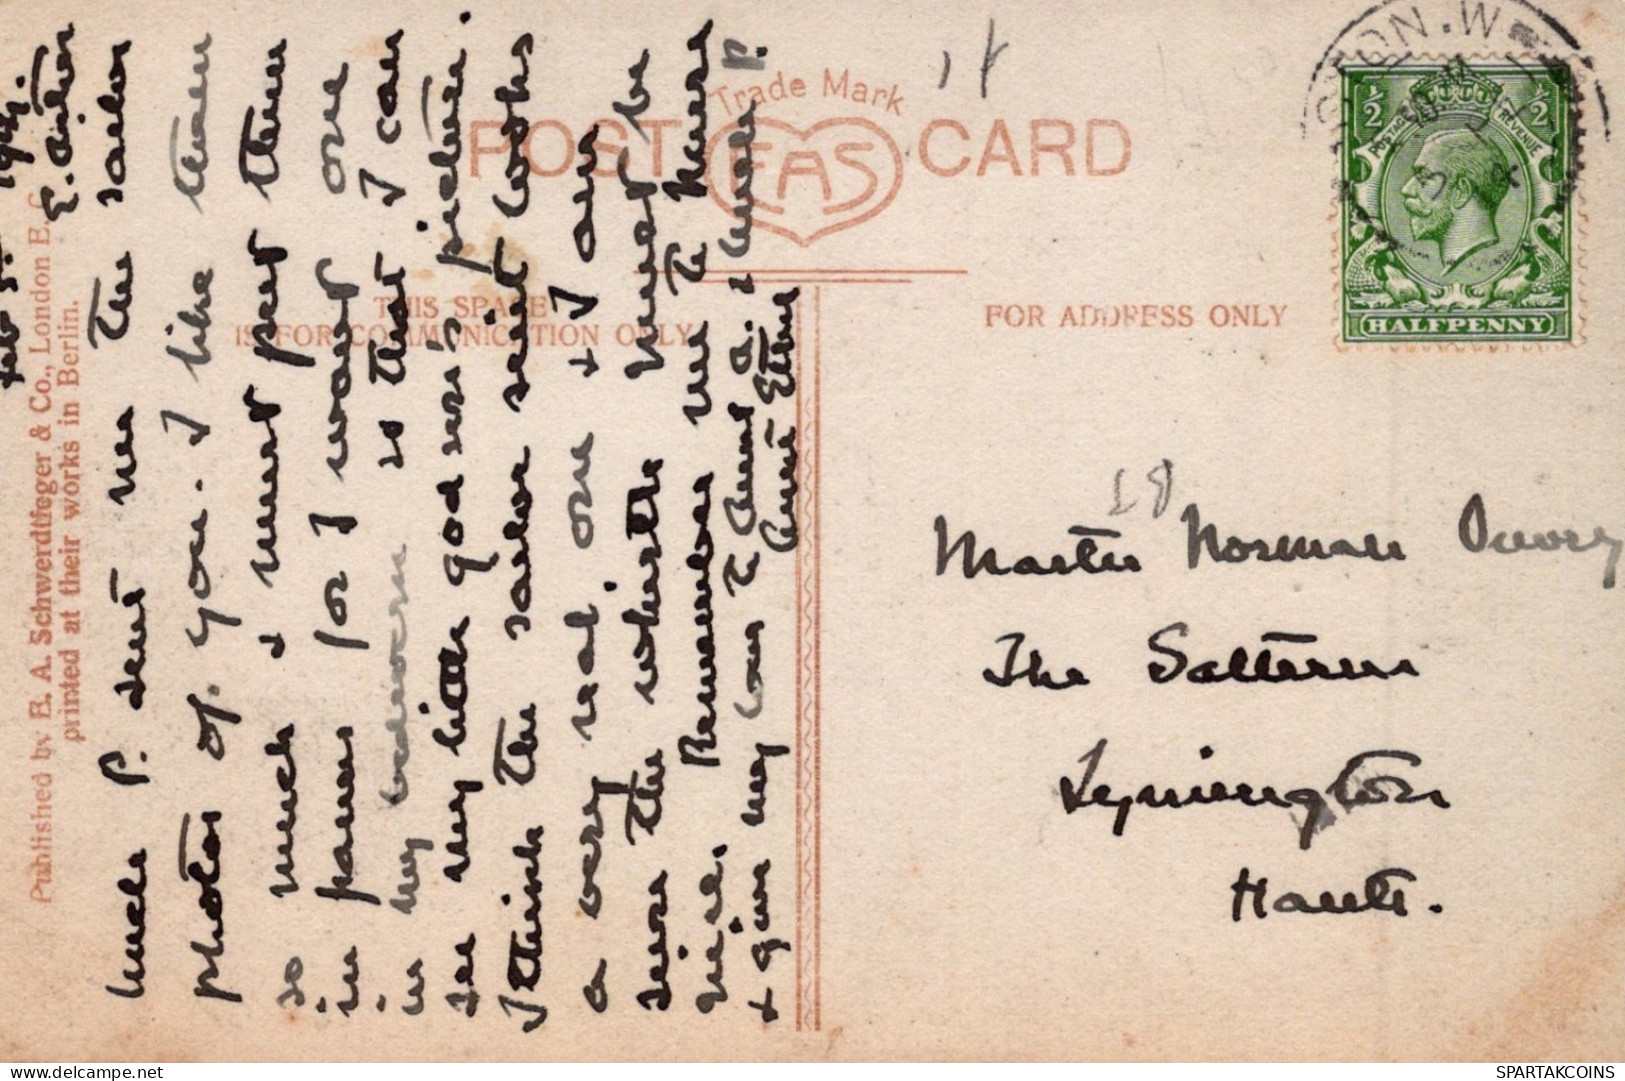 Feb 5. 1914.
Uncle P. sent me the sailor
photos of you. I like them
so much & must put them
in frames for I want one
in my bedroom so that I can
see my little god son's picture.
I think the sailor suit looks
a very real one & I am
sure the whistle must be
nice. Remember me to Nurse
& give my love to Aunt A. & Uncle P.
Aunt Ethel
Published by E. A. Schwerdtfeger & Co., London E. C.
printed at their works in Berlin.
POST CARD
Trade Mark
EAS
THIS SPACE
IS FOR COMMUNICATION ONLY
FOR ADDRESS ONLY
½ ½
POSTAGE REVENUE
HALFPENNY
Master Norman
The Salterns
Lymington
Hants.
SPARTAKCOINS
www.delcampe.net